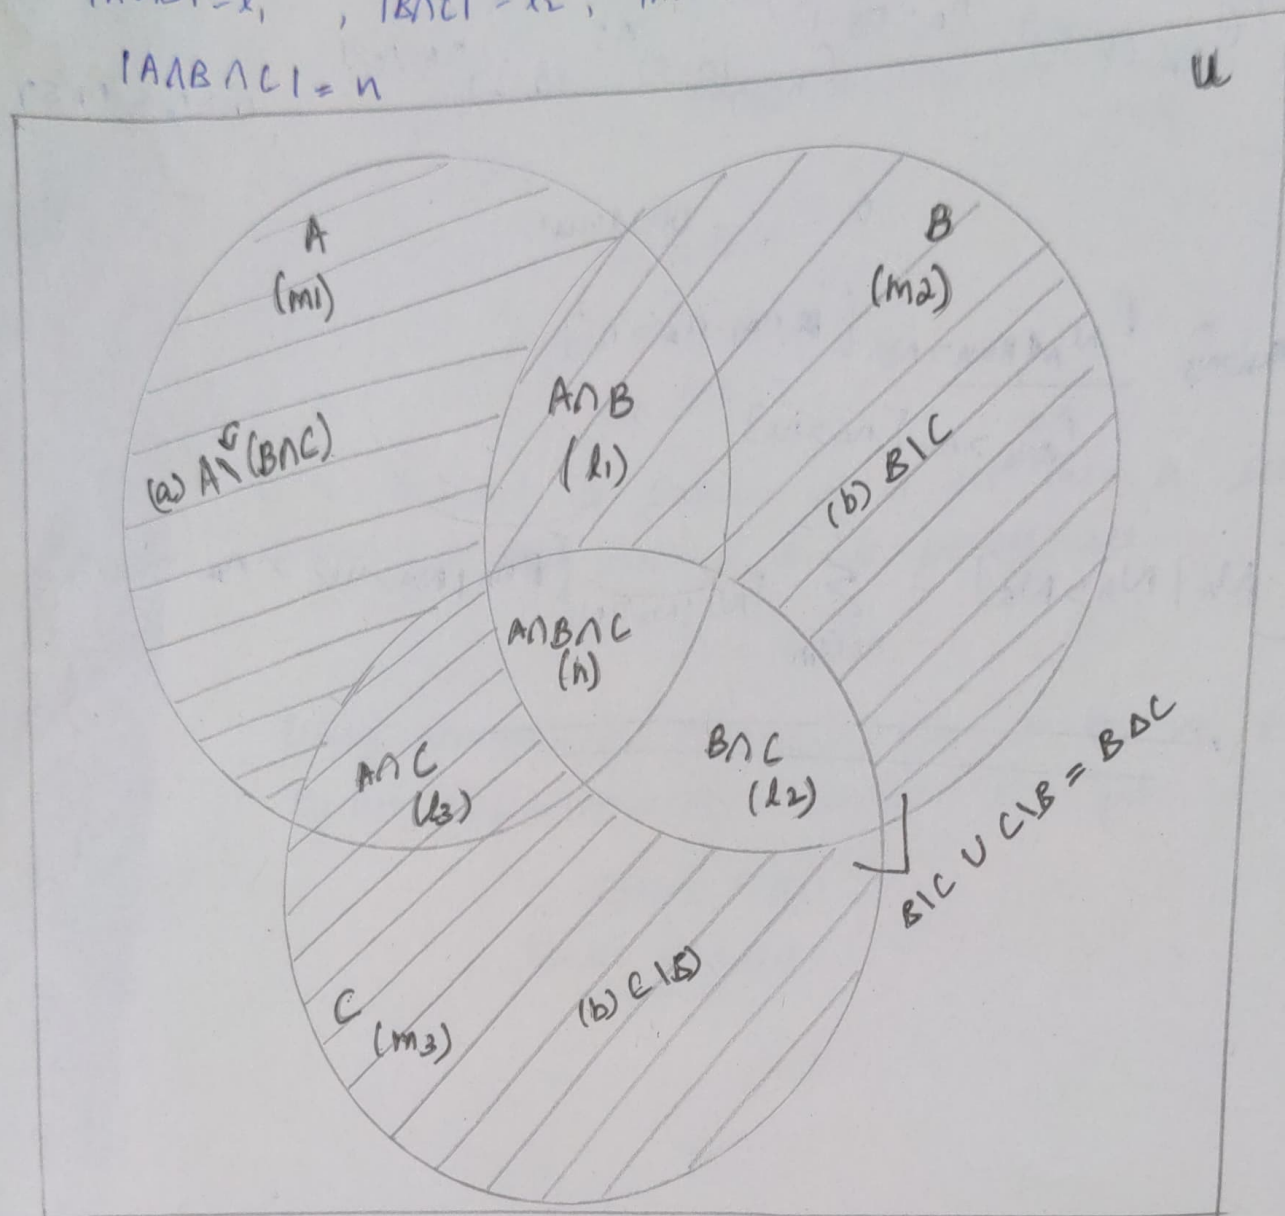 , |B∩C| = l2,
|A∩B∩C| = n
U
A
(m1)
B
(m2)
A∩B
(l1)
(a) A\(B∩C)
(b) B\C
A∩B∩C
(n)
A∩C
(l3)
B∩C
(l2)
B\C ∪ C\B = B∆C
C
(m3)
(b) C\B